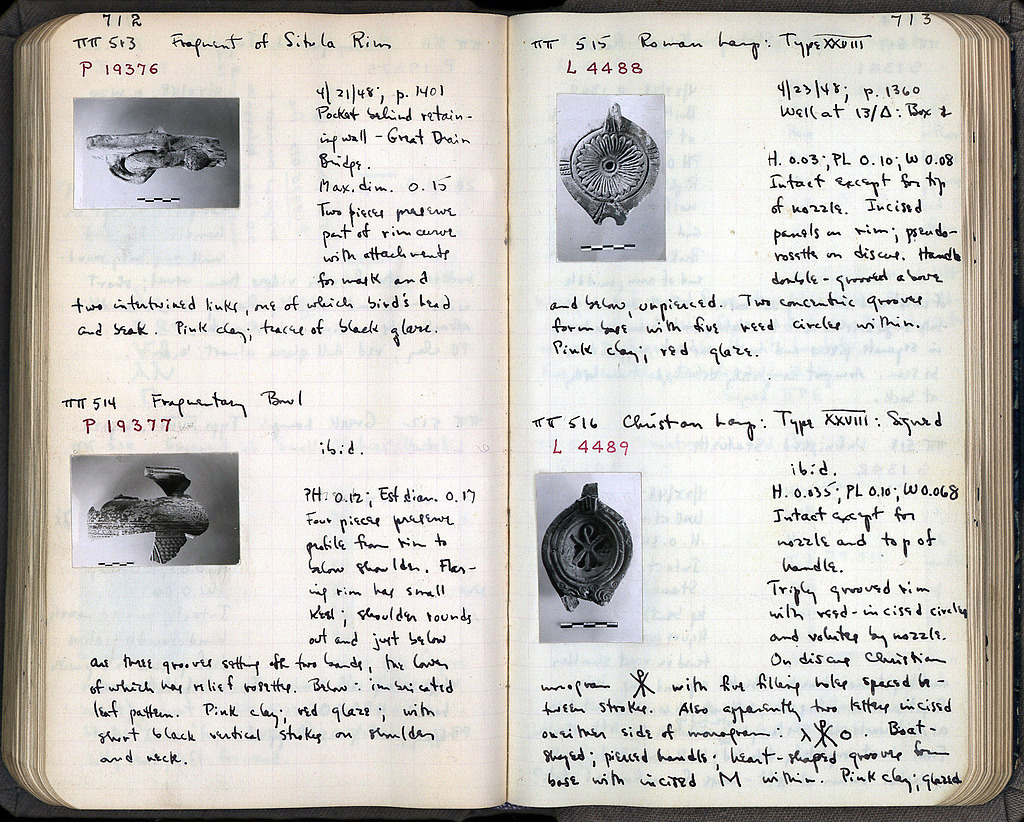 712
ΠΠ 513 Fragment of Situla Rim
P 19376
4/21/48; p. 1401
Pocket behind retain-
ing wall - Great Drain
Bridge.
Max. dim. 0.15
Two pieces preserve
part of rim curve
with attachments
for mask and
two intertwined links, one of which bird's head
and beak. Pink clay; traces of black glaze.
ΠΠ 514 Fragmentary Bowl
P 19377
ibid.
PH. 0.12; Est diam. 0.17
Four pieces preserve
profile from rim to
below shoulder. Flar-
ing rim has small
keel; shoulder rounds
out and just below
are three grooves setting off two bands, the lower
of which has relief rosettes. Below: imbricated
leaf pattern. Pink clay; red glaze; with
short black vertical strokes on shoulder
and neck.
713
ΠΠ 515 Roman Lamp: Type XXVIII
L 4488
4/23/48; p. 1360
Well at 13/Δ: Box 2
H. 0.03; PL 0.10; W 0.08
Intact except for tip
of nozzle. Incised
panels on rim; pseudo-
rosette on discus. Handle
double-grooved above
and below, unpierced. Two concentric grooves
form base with five reed circles within.
Pink clay; red glaze.
ΠΠ 516 Christian Lamp: Type XXVIII: Signed
L 4489
ibid.
H. 0.035; PL 0.10; W 0.068
Intact except for
nozzle and top of
handle.
Triply grooved rim
with reed-incised circles
and volutes by nozzle.
On discus Christian
monogram ☧ with five filling holes spaced be-
tween strokes. Also apparently two letters incised
on either side of monogram: λ ☧ O Boat-
shaped; pierced handle; heart-shaped grooves form
base with incised M within. Pink clay; glazed